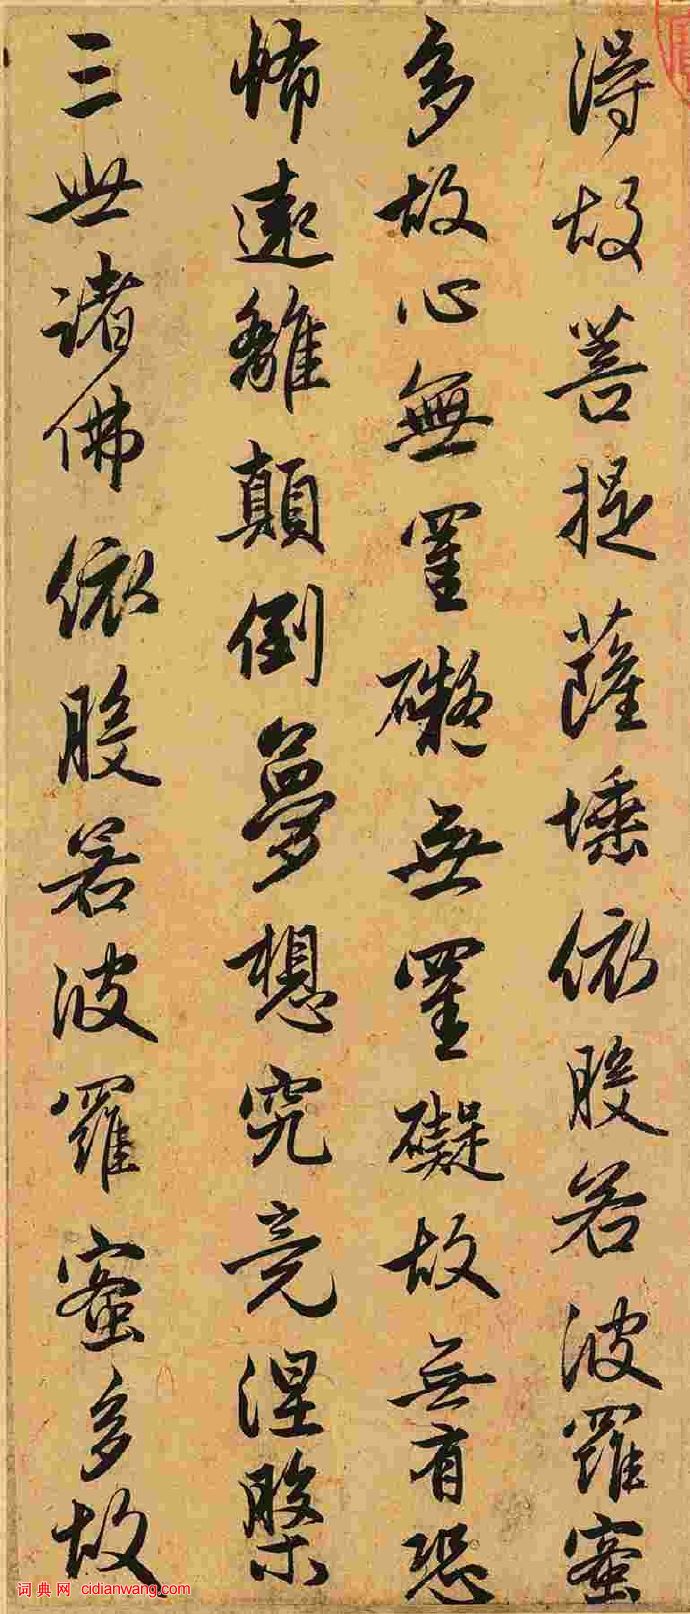 得故菩提薩埵依般若波羅蜜
多故心無罣礙無罣礙故無有恐
怖遠離顛倒夢想究竟涅槃
三世諸佛依般若波羅蜜多故
词典网 cidianwang.com